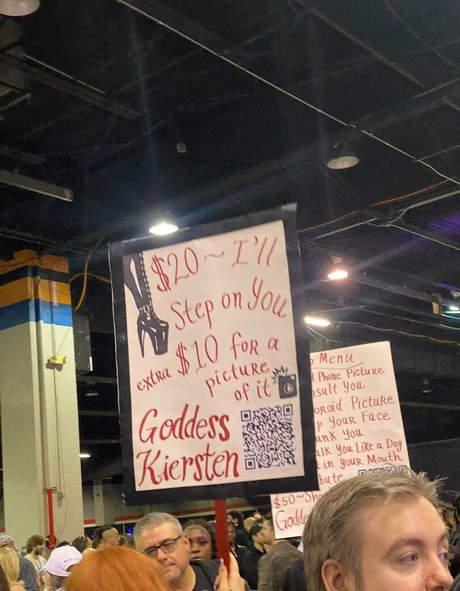 $20 ~ I'll
Step on You
extra $10 for a
picture
of it
Goddess
Kiersten
Menu
Phone Picture
sult You
oroid Picture
p Your Face
ank You
alk You Like a Dog
t in Your Mouth
bute
$50~Sh
Godde